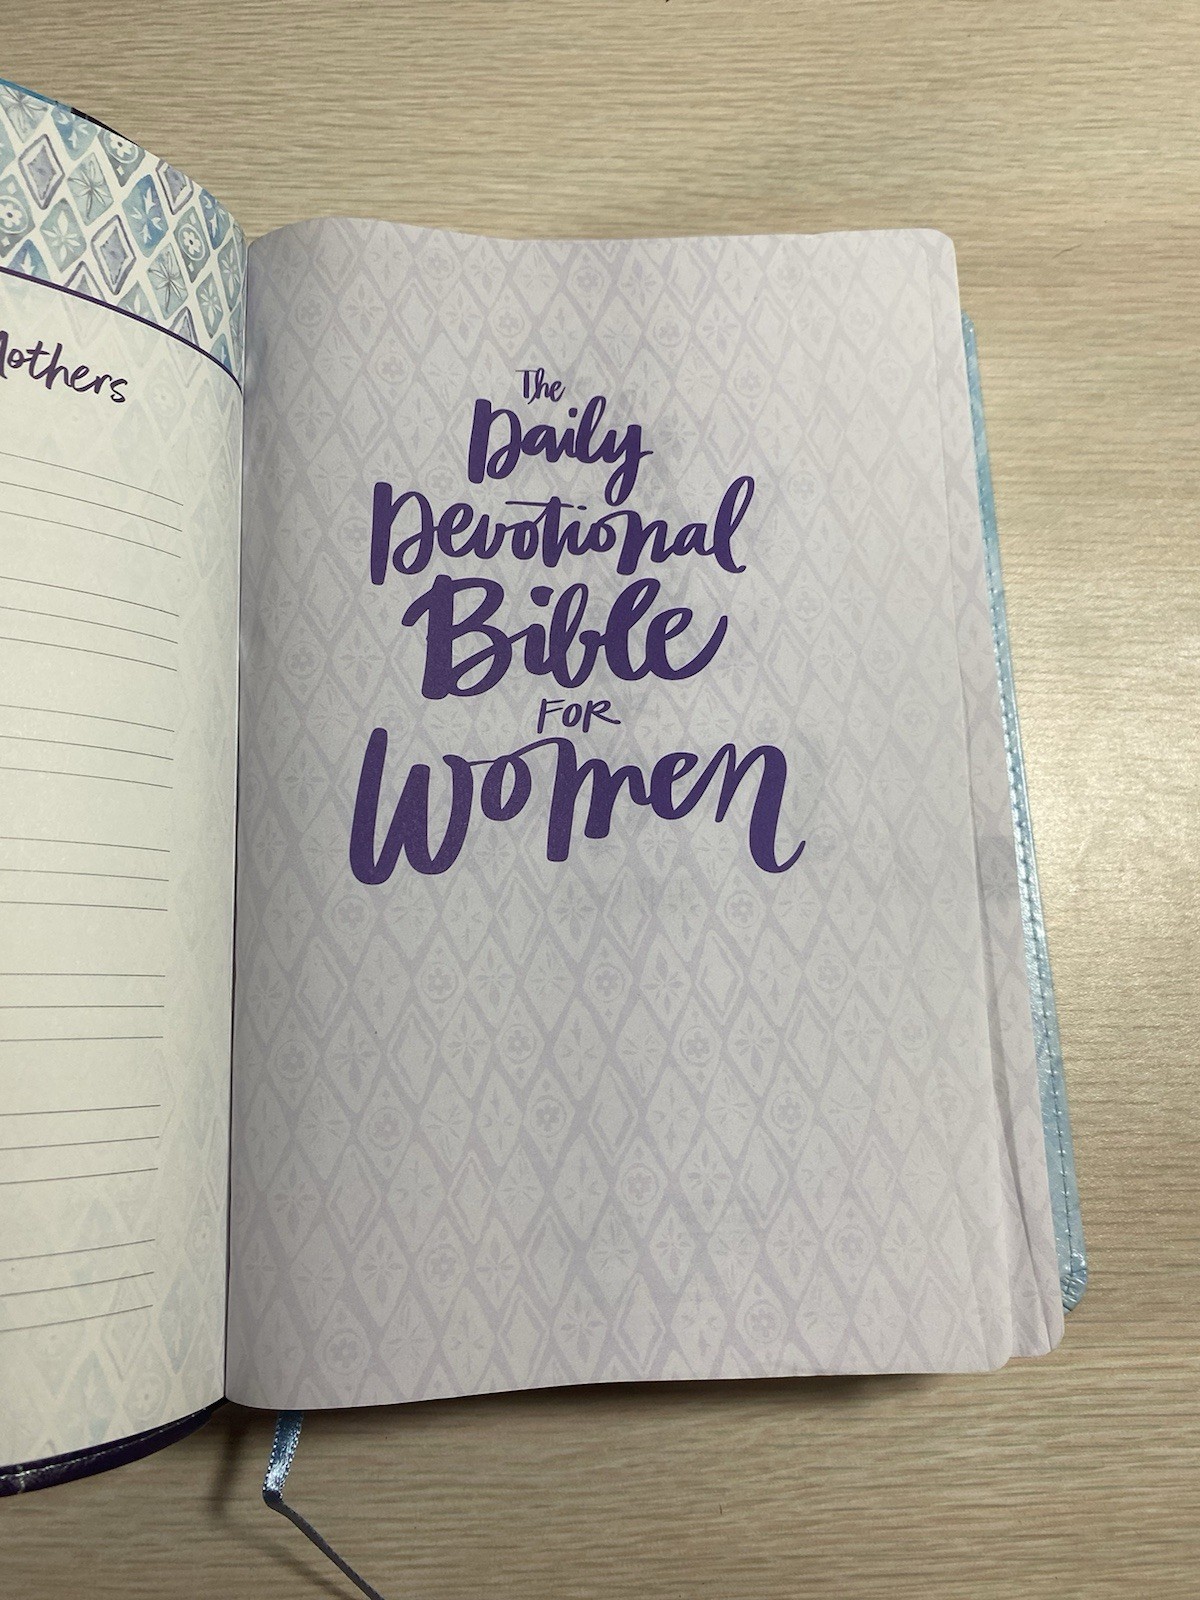 The
Daily
Devotional
Bible
FOR
Women